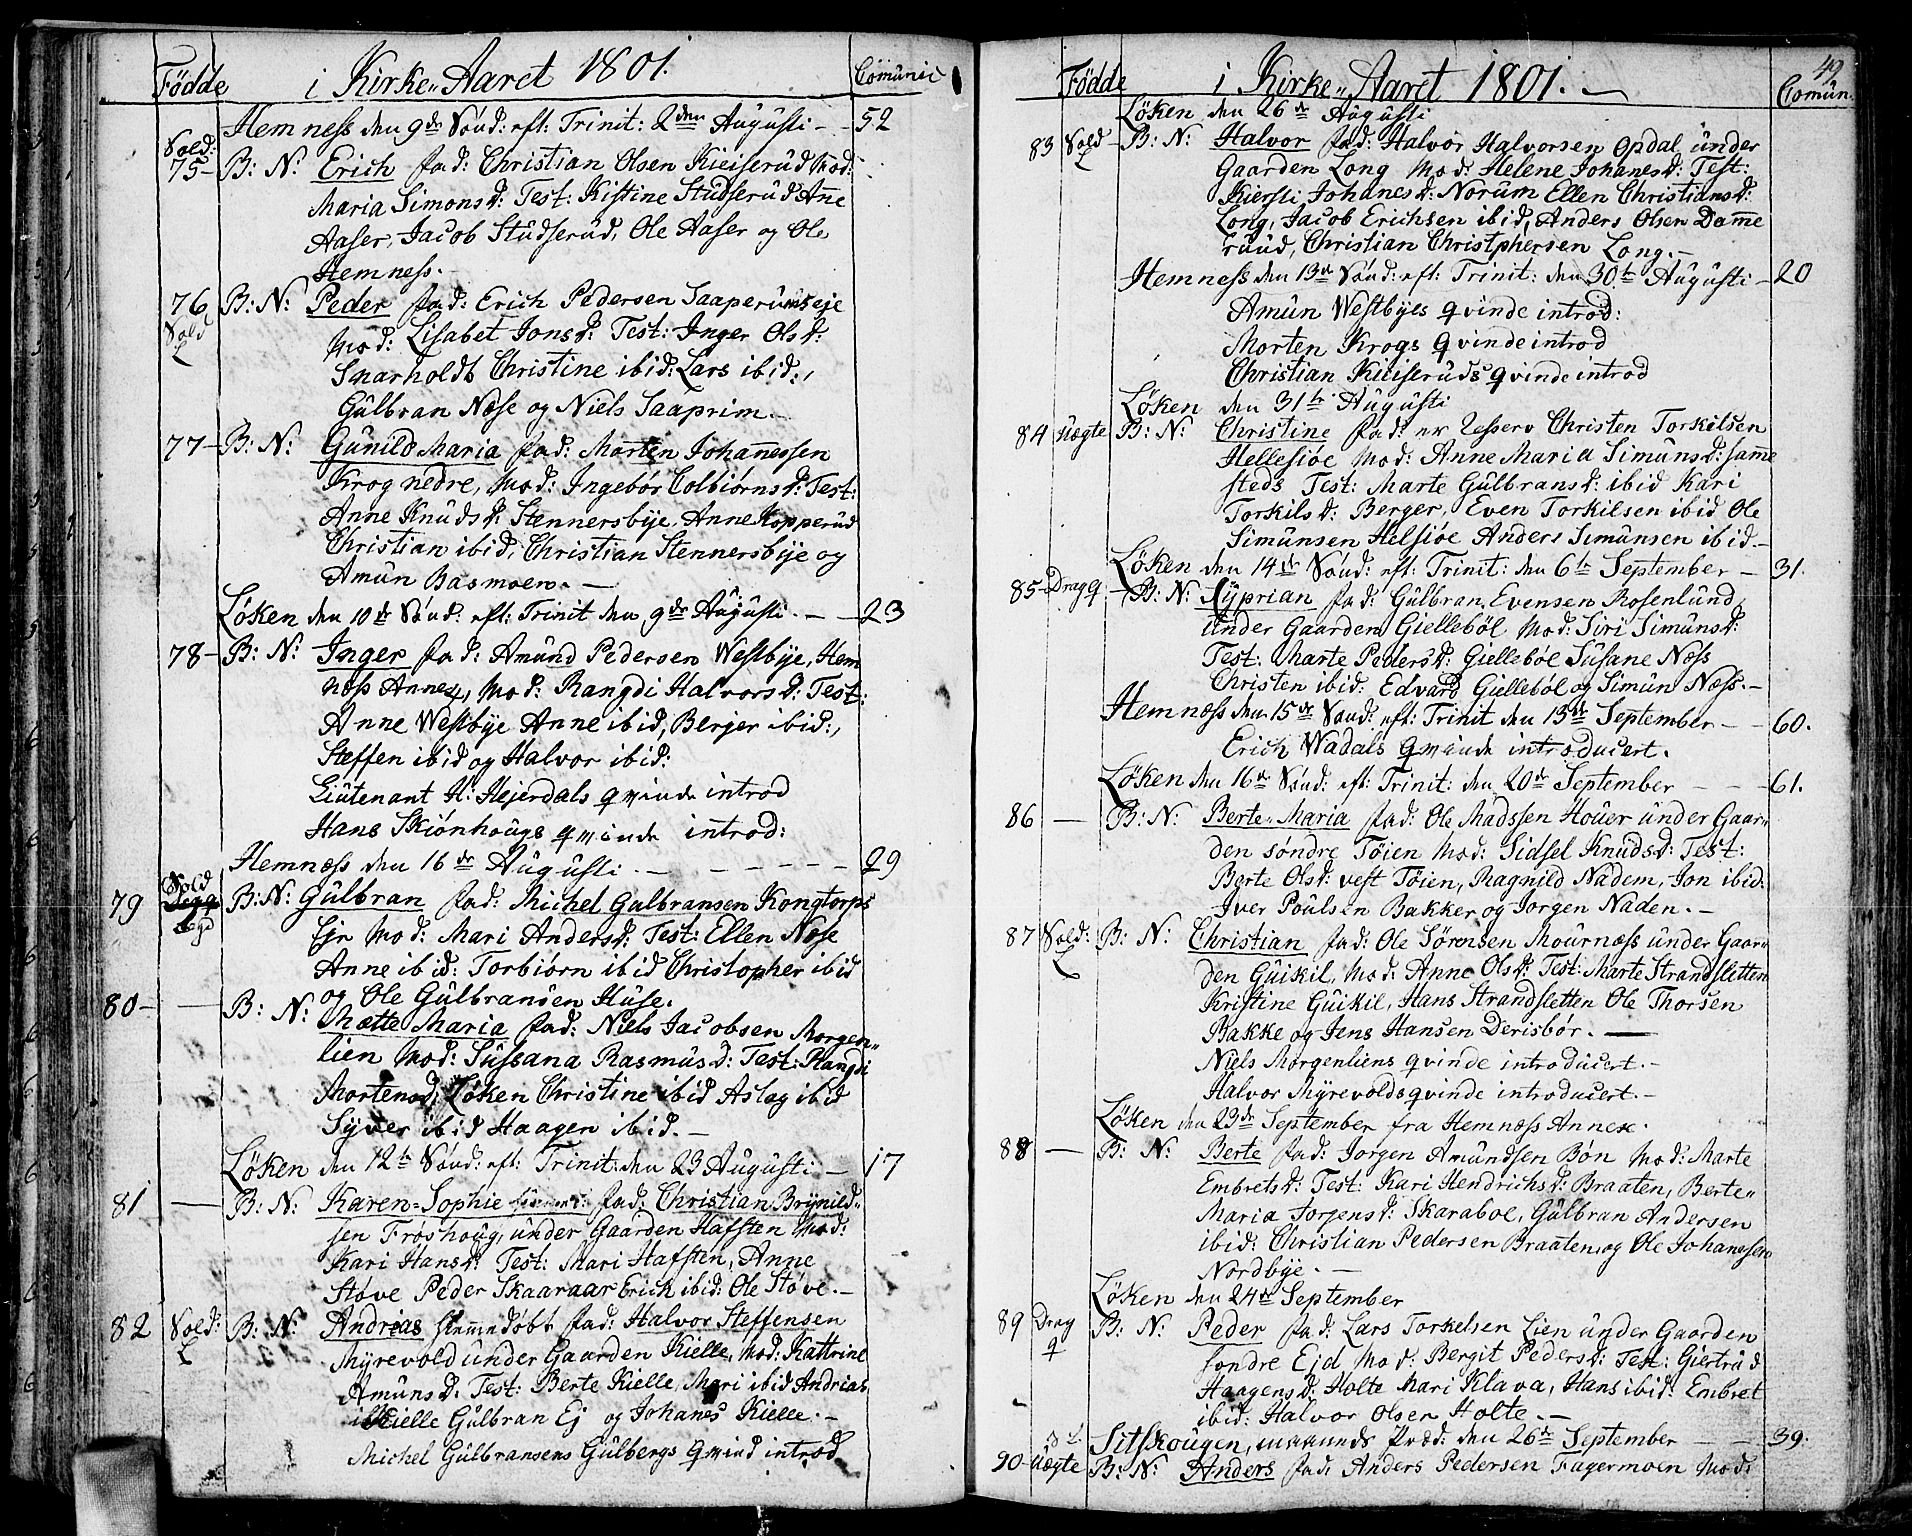 Födde i Kirke-Aaret 1801. Comunic
Hemness den 9de Sönd: eft: Trinit: 2den Augusti - 52
Sold:
75 - B: N: Erich fad: Christian Olsen Kieiserud Mod:
Maria Simonsd: Test: Kistine Studserud Añe
Aaser, Jacob Studserud, Ole Aaser og Ole
Hemness.
76 B: N: Peder fad: Erich Pedersen Saaperudseje
Sold
L
Mod: Lisabet Jonsd: Test: Inger Olsd:
Snarholdt Christine ibid: Lars ibid:,
Gulbran Næse og Niels Saaprim.
77 - B: N: Gunild Maria fad: Morten Johañessen
Krog nedre, Mod: Ingebör Colbiörnsd: Test:
Anne Knudsd: Stennersbye, Anne Kopperud
Christian ibid, Christian Stennersbye og
Amun Basmoen. -
Löken den 10de Sönd: eft: Trinit den 9de Augusti. - 23
78 - B: N: Inger fad: Amund Pedersen Westbye, Hem
næss Annex, Mod: Rangdi Halvorsd: Test:
Anne Westbye Anne ibid, Berjer ibid:,
Steffen ibid og Halvor ibid:
Liutenant H: Hejerdals qvinde introd
Hans Skiönhougs qvinde introd:
Hemnæss den 16de Augusti. - 29
Sold
79 B: N: Gulbran fad: Michel Gulbransen Kongtorps
Ejr Mod: Mari Andersd: Test: Ellen Næse
Anne ibid: Torbiörn ibid Christopher ibid
og Ole Gulbransen Huse.
80 - B: N: Mætte Maria fad: Niels Jacobsen Morgen-
lien Mod: Sussana Rasmusd: Test: Rangdi
Mortensd, Löken Christine ibid Aslag ibid
Syver ibid Haagen ibid. -
Löken den 12te Sönd: eft: Trinit: den 23 Augusti - 17
81 - B: N: Karen-Sophie fad: Christian Brynild-
sen Fröshoug, under Gaarden Hafsten Mod:
Kari Hansd: Test: Mari Hafsten, Anne
Støve Peder Skaaraar Erich ibid: Ole Støve. -
82 Sold: B: N: Andreas hiemmedöbt fad: Halvor Steffensen
L
Myrevold under Gaarden Kielle, Mod: Kattrine
Amunsd: Test: Berte Kielle, Mari ibid Andrias
Kielle Gulbran Ej og Johanes Kielle. -
Michel Gulbransens Gulbergs Qvind introd
49
Födde i Kirke-Aaret 1801. - Comun.
Löken den 26de Augusti
83 Sold B: N: Halvor fad: Halvor Halvorsen Opdal under
L
Gaarden Long Mod: Helene Johanesd: Test:
Kiersti Johanesd: Norum Ellen Christiansd:
Long, Jacob Erichsen ibid, Anders Olsen Dam̄e
ruud, Christian Christphersen Long. -
Hemness den 13de Sönd: eft: Trinit: den 30te Augusti - 20
Amun Westbyes qvinde introd:
Morten Krogs qvinde introd
Christian Kieiseruds qvinde introd
Löken den 31te Augusti
84 uægte B: N: Christine fad: er Christen Torkilsen
Hellesiöe Mod: Anne Maria Simunsd: sam̄e
steds Test: Marte Gulbransd: ibid Kari
Torkilsd: Berger, Even Torkilsen ibid Ole
Simunsen Helsiöe Anders Simunsen ibid. -
Löken den 14de Sönd: eft: Trinit: den 6te September - 31.
85 - Drag q - B: N: Syprian fad: Gulbran Evensen Rosenlund,
under Gaarden Gielleböl Mod: Siri Simunsd:
Test: Marte Pedersd: Gielleböl Susane Næss
Christen ibid: Edvard Gielleböl og Simun Næss. -
Hemnæss den 15de Sönd: eft: Trinit den 13de September - 60.
Erich Wadals qvinde introducert.
Löken den 16de Sönd: eft: Trinit: den 20de September - 61.
86 - B: N: Berte-Maria fad: Ole Madssen Houer under Gaar-
den söndre Töien Mod: Sidsel Knudsd: Test:
Berte Olsd: vest Töien, Ragnild Nadem, Jon ibid:
Iver Poulsen Bakker og Jorgen Naden. -
87 Sold: B: N: Christian fad: Ole Sörensen Mournæss under Gaar-
L
den Guikil, Mod: Anne Olsd: Test: Marte Strandsletten
Kristine Guikil, Hans Strandsletten Ole Thorsen
Bakke og Jens Hansen Derisbör. -
Niels Morgenliens qvinde introducert. -
Halvor Myrevolds qvinde introducert. -
Löken den 23de September fra Hemnæss Annex.
88 - B: N: Berte fad: Jorgen Amundsen Bön Mod: Marte
Embretsd: Test: Kari Hendrichsd: Braaten, Berte-
Maria Jorgensd: Skaraboe, Gulbran Andersen
ibid: Christian Pedersen Braaten, og Ole Johanessen
Nordbye. -
Löken den 24de September
89 Drag B: N: Peder fad: Lars Torkelsen Lien under Gaarden
q
söndre Ejd Mod: Bergit Pedersd: Test: Giertrud
Haagensd: Holte Mari Klava, Hans ibid: Embret
ibid: Halvor Olsen Holte. -
Sitskougen, den 26de September - 39.
90 - uægte B: N: Anders fad: Anders Pedersen Fagermoen Mod: